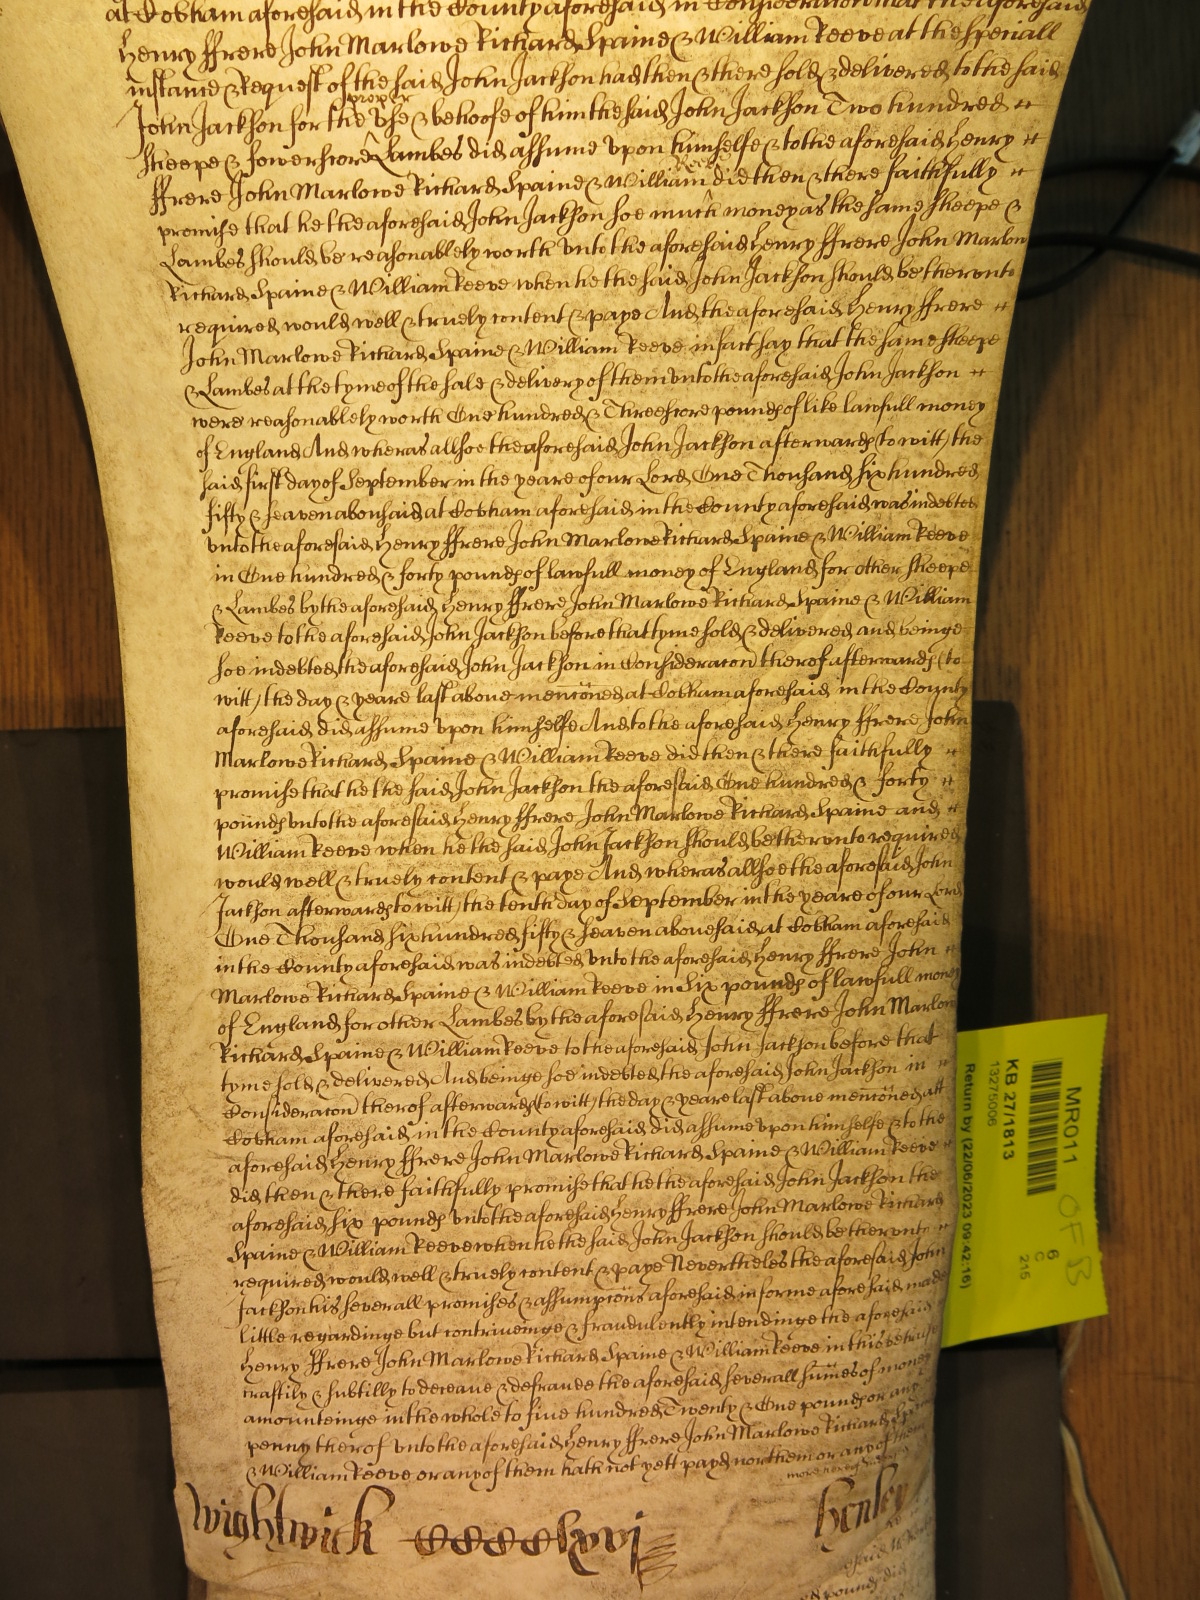 at Cobham aforesaid in the County aforesaid in Consideracon that the aforesaid
Henry ffrere John Marlowe Richard Spaine & William Reeve at the speciall
instance & Request of the said John Jackson had then & there sold & delivered to the said
proper
John Jackson for the Use & behoofe of him the said John Jackson Two hundred
Sheepe & fowerscore Lambes did assume upon himselfe & to the aforesaid Henry
Reeve
ffrere John Marlowe Richard Spaine & William did then & there faithfully
promise that he the aforesaid John Jackson soe much money as the same Sheepe &
Lambes should be reasonablely worth unto the aforesaid Henry ffrere John Marlow
Richard Spaine & William Reeve when he the said John Jackson should be therunto
required would well & truely content & paye And the aforesaid Henry ffrere
John Marlowe Richard Spaine & William Reeve in fact say that the same Sheepe
& Lambes at the tyme of the sale & delivery of them unto the aforesaid John Jackson
were reasonablely worth One hundred & Threescore pounds of like lawfull money
of England And wheras allsoe the aforesaid John Jackson afterwards (to witt) the
said first day of September in the yeare of our Lord One Thousand six hundred
fifty & seaven abovesaid at Cobham aforesaid in the County aforesaid was indebted
unto the aforesaid Henry ffrere John Marlowe Richard Spaine & William Reeve
in One hundred & forty pounds of lawfull money of England for other Sheepe
& Lambes by the aforesaid Henry ffrere John Marlowe Richard Spaine & William
Reeve to the aforesaid John Jackson before that tyme sold & delivered and beinge
soe indebted the aforesaid John Jackson in Consideracon therof afterwards (to
witt) the day & yeare last above mencioned at Cobham aforesaid in the County
aforesaid did assume upon himselfe And to the aforesaid Henry ffrere John
Marlowe Richard Spaine & William Reeve did then & there faithfully
promise that he the said John Jackson the aforesaid One hundred & forty
pounds unto the aforesaid Henry ffrere John Marlowe Richard Spaine and
William Reeve when he the said John Jackson should be therunto required
would well & truely content & paye And wheras allsoe the aforesaid John
Jackson afterwards (to witt) the tenth day of September in the yeare of our Lord
One Thousand six hundred fifty & seaven abovesaid at Cobham aforesaid
in the County aforesaid was indebted unto the aforesaid Henry ffrere John
Marlowe Richard Spaine & William Reeve in Six pounds of lawfull money
of England for other Lambes by the aforesaid Henry ffrere John Marlow
Richard Spaine & William Reeve to the aforesaid John Jackson before that
tyme sold & delivered And beinge soe indebted the aforesaid John Jackson in
Consideracon therof afterwards (to witt) the day & yeare last above mencioned att
Cobham aforesaid in the County aforesaid did assume upon himselfe & to the
aforesaid Henry ffrere John Marlowe Richard Spaine & William Reeve
did then & there faithfully promise that he the aforesaid John Jackson the
aforesaid six pounds unto the aforesaid Henry ffrere John Marlowe Richard
Spaine & William Reeve when he the said John Jackson should be therunto
required would well & truely content & paye Neverthelesse the aforesaid John
Jackson his severall promises & assumpcons aforesaid in forme aforesaid made
little regardinge but contriveinge & fraudulently intendinge the aforesaid
Henry ffrere John Marlowe Richard Spaine & William Reeve in this behalfe
craftily & subtilly to deceave & defraude the aforesaid severall sumes of money
amounteinge in the whole to five hundred Twenty & One pounds or any
penny therof unto the aforesaid Henry ffrere John Marlowe Richard Spaine
& William Reeve or any of them hath not yett payd nor them or any of them
Wightwick CCCClxvj
Henley
said
pounds did
MR011
KB 27/1813
13275006
Return by (22/06/2023 09:42:16)
6
C
215
OF B